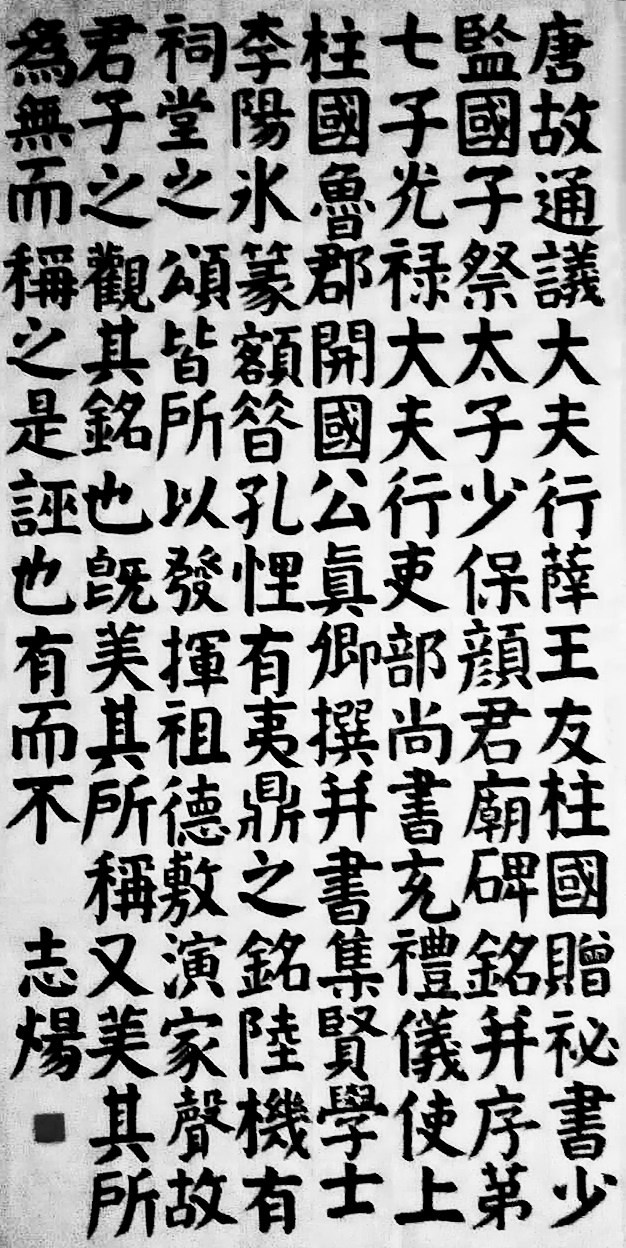 唐故通議大夫行薛王友柱國贈祕書少
監國子祭太子少保顔君廟碑銘并序第
七子光禄大夫行吏部尚書充禮儀使上
柱國魯郡開國公真卿撰并書集賢學士
李陽氷篆額昝孔悝有夷鼎之銘陸機有
祠堂之頌皆所以發揮祖德敷演家聲故
君子之觀其銘也既美其所稱又美其所
為無而稱之是誣也有而不
志煬